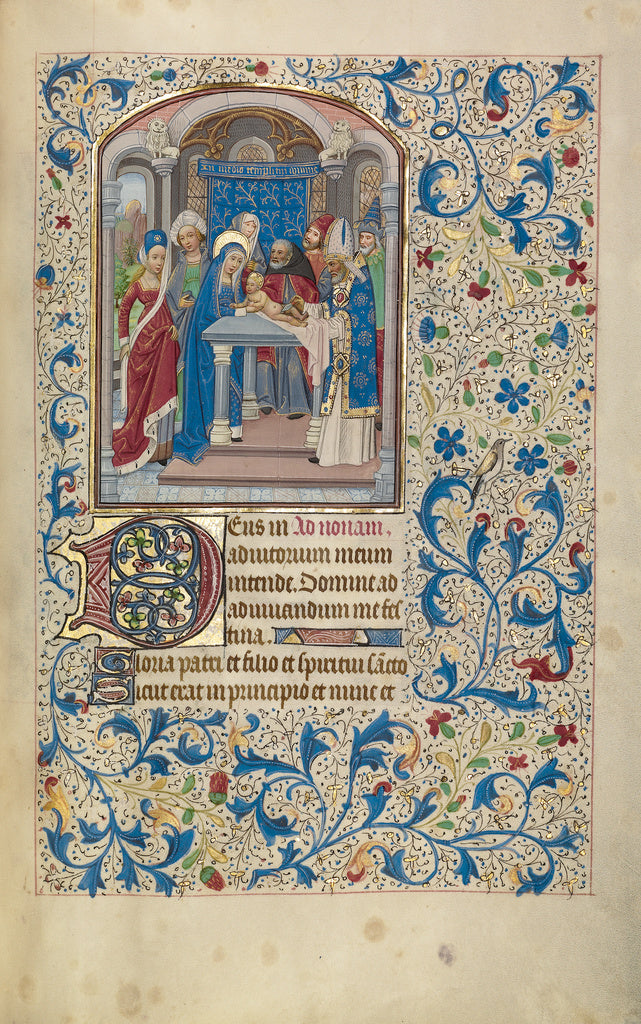 In medio templi tui
Deus in Ad nonam.
adiutorium meum
intende. Domine ad
adiuuandum me fes
tina.
Gloria patri et filio et spiritui sc̄to
Sicut erat in principio et nunc et